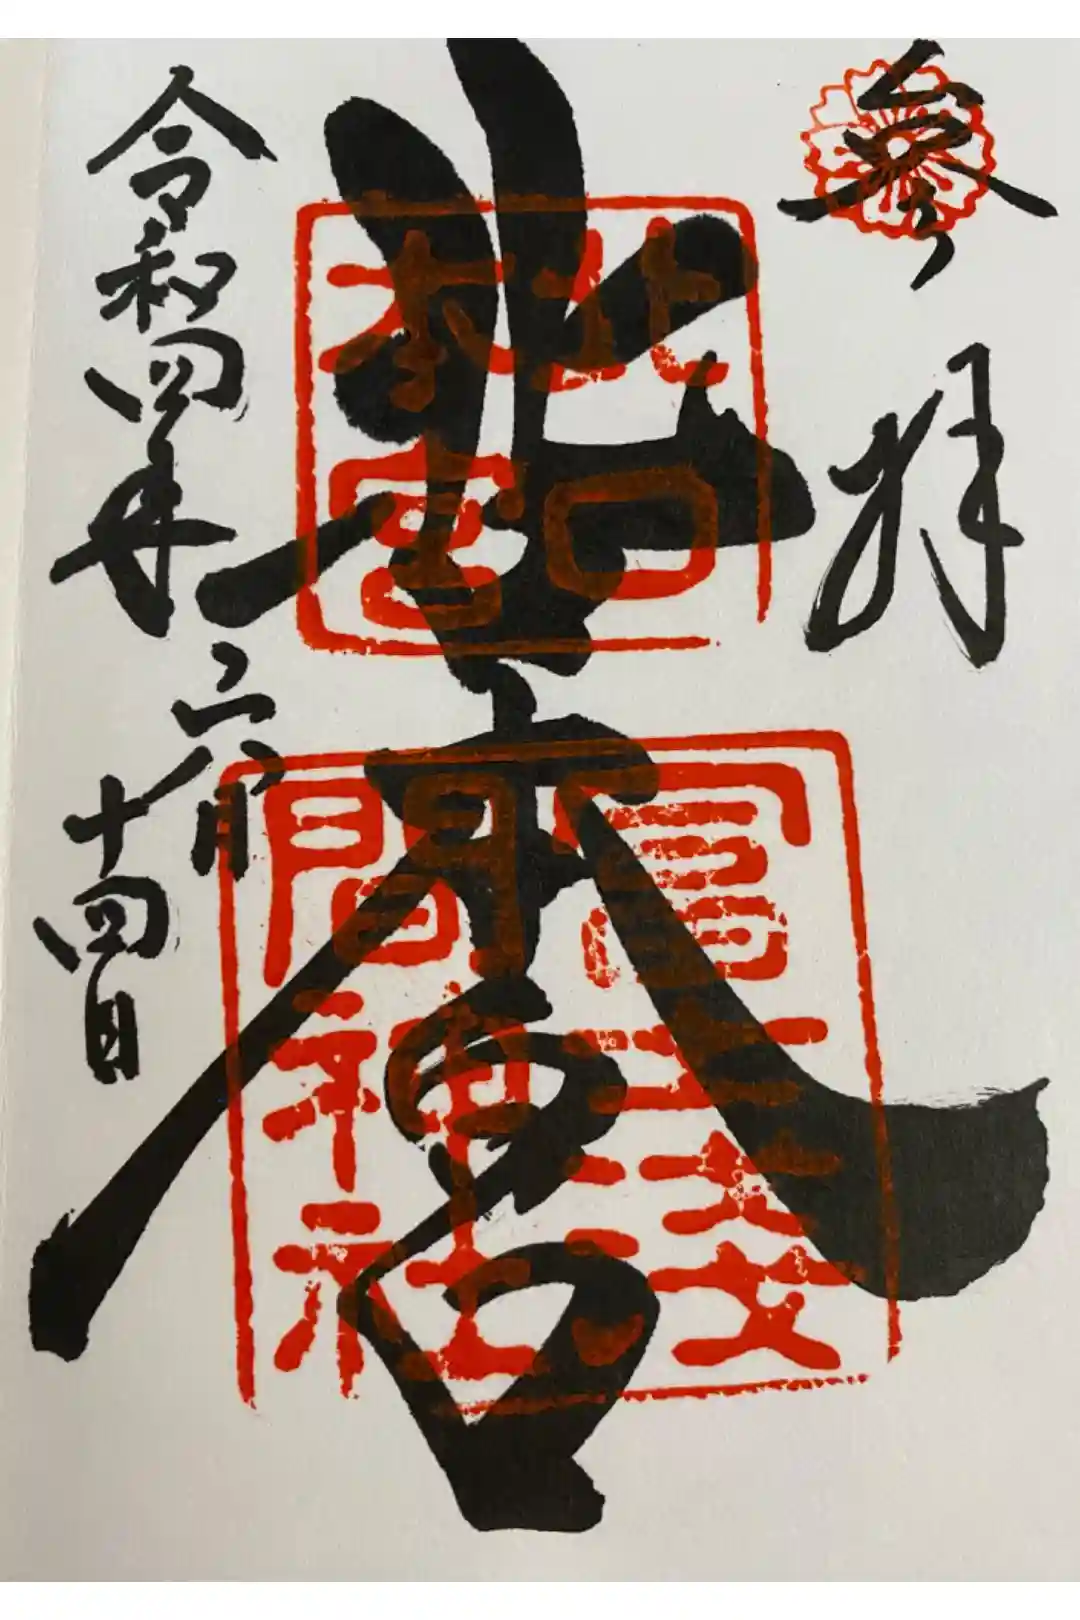 参拝
北口本宮
北口
本宮
冨士浅
間神社
令和四年六月十四日